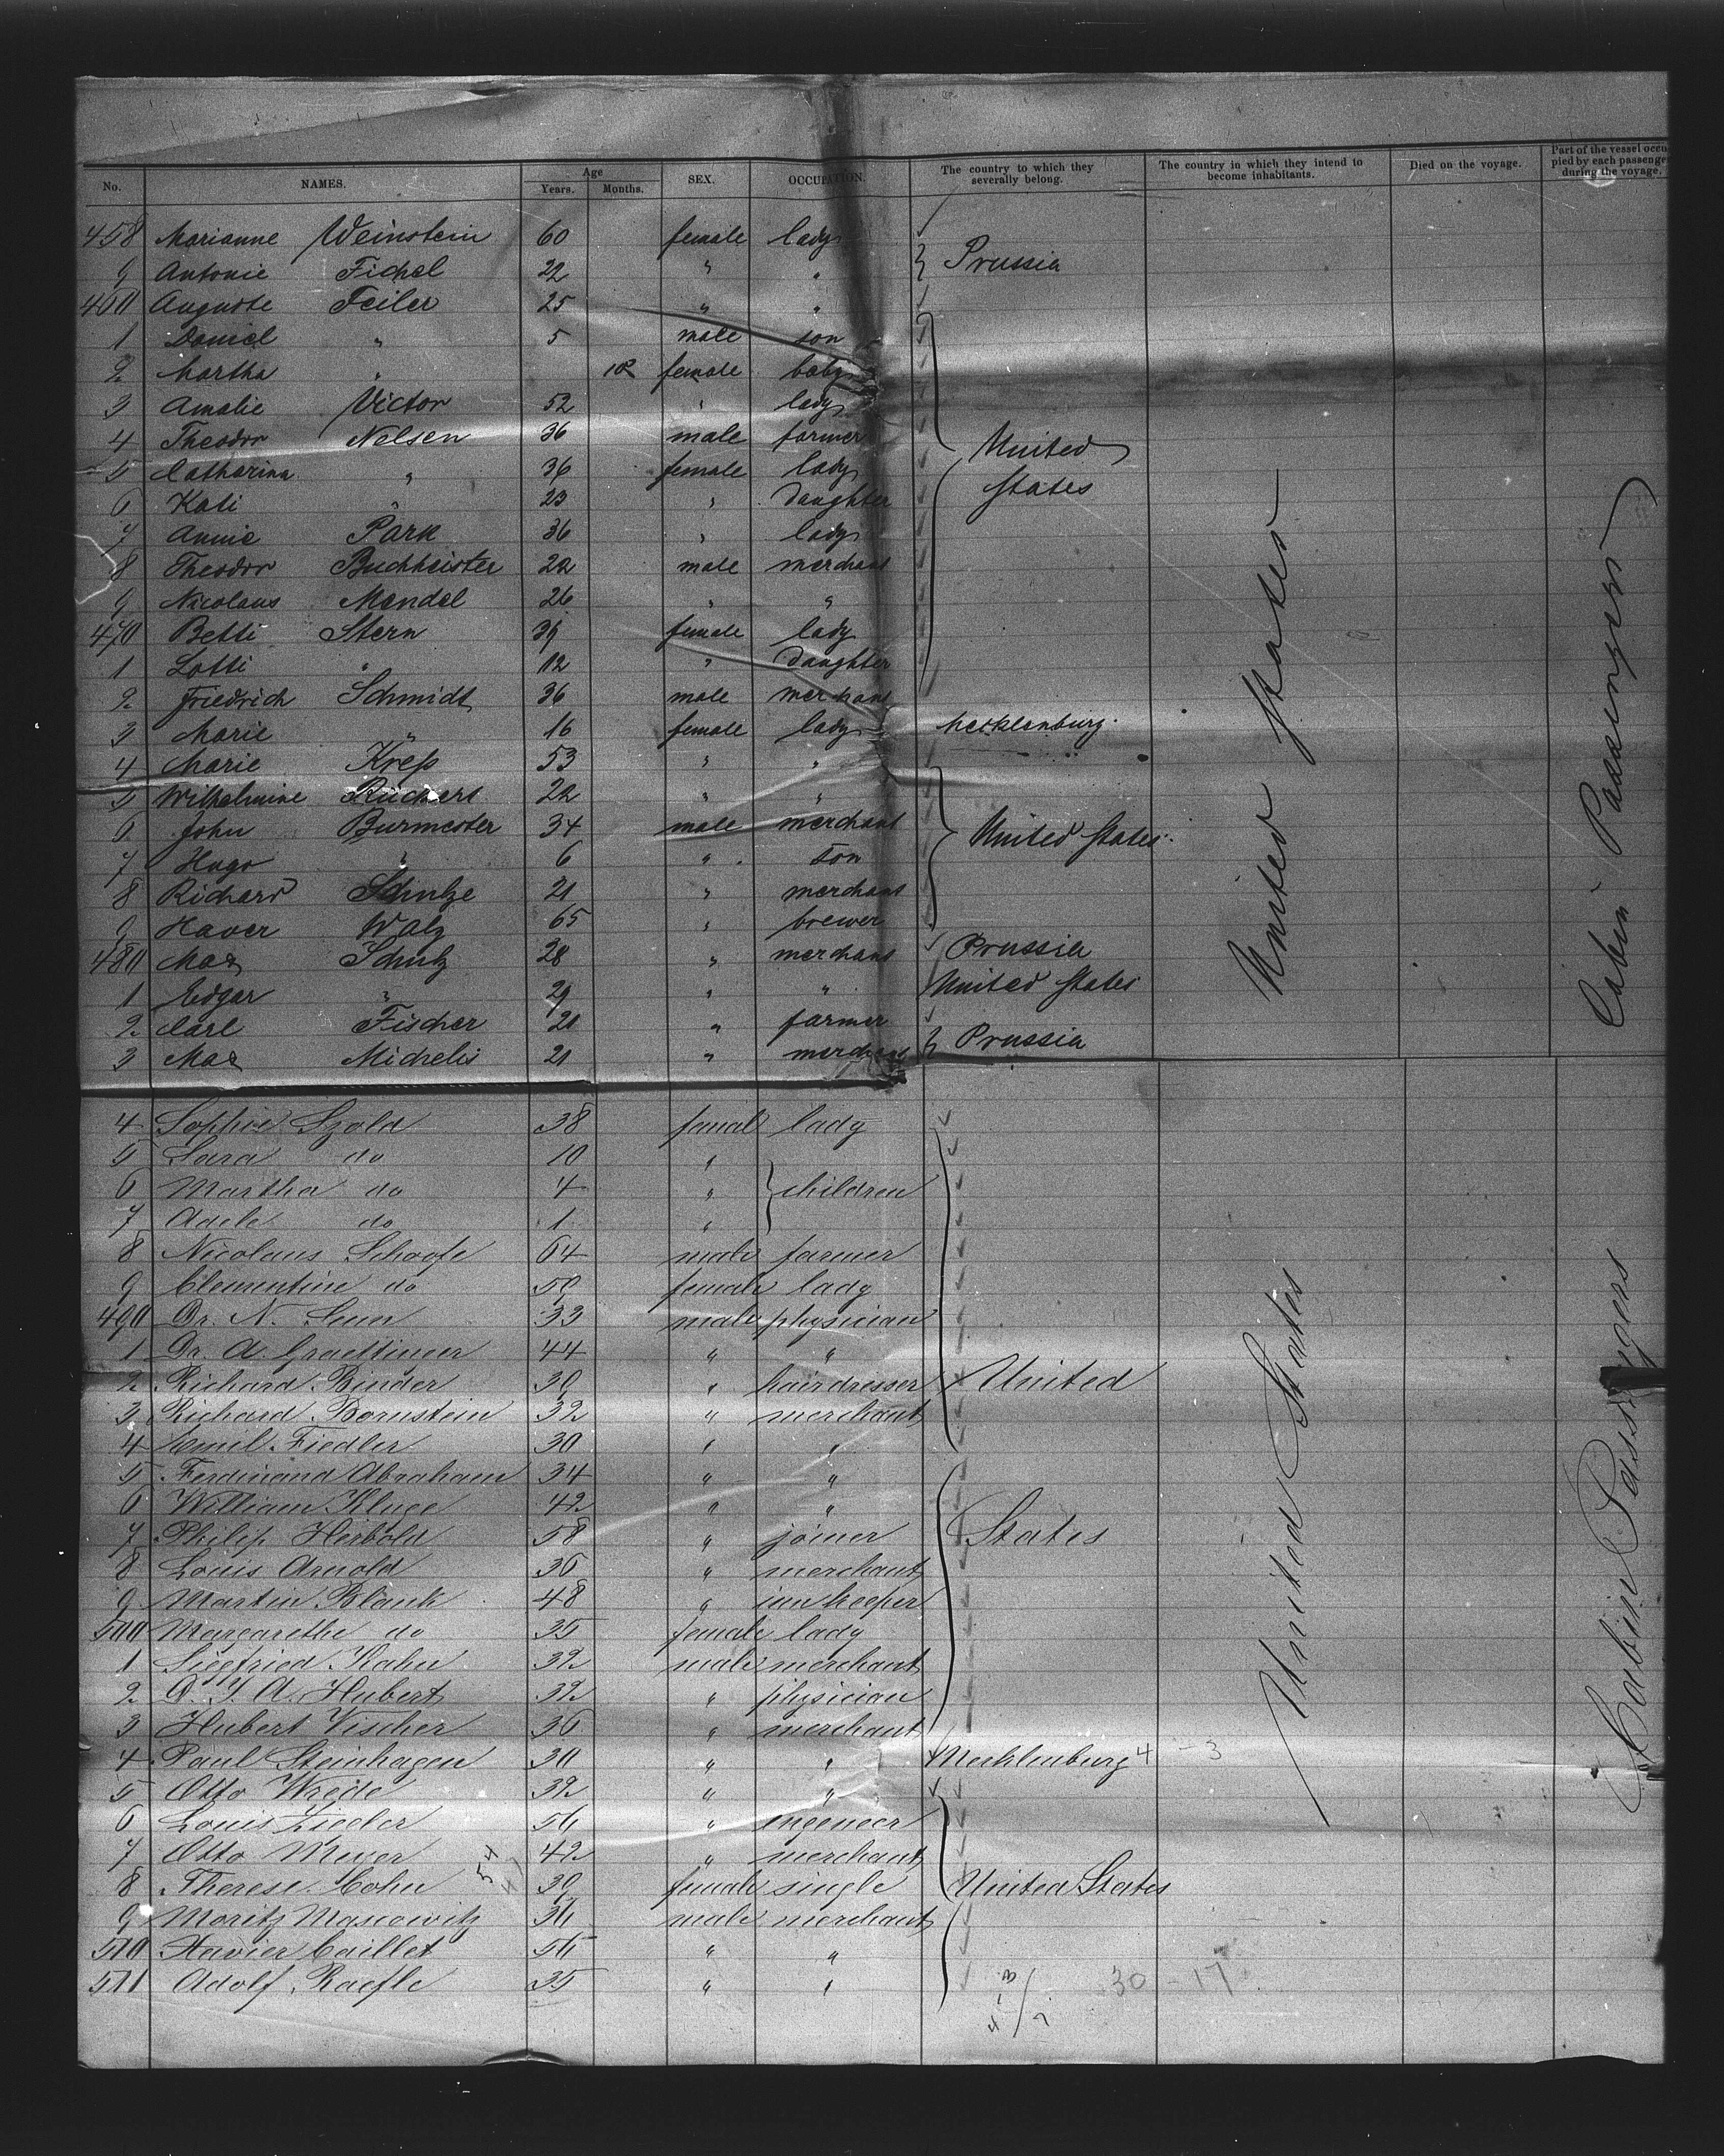 No. NAMES. Age Years. Months. SEX. OCCUPATION. The country to which they severally belong. The country in which they intend to become inhabitants. Died on the voyage. Part of the vessel occupied by each passenger during the voyage.
458 Marianne Weinstein 60 female lady
9 Antonie Fichel 22 " " Prussia
460 Auguste Feiler 25 " "
1 Daniel " 5 male son
2 Martha " 10 female baby
3 Amalie Victor 52 " lady
4 Theodor Nelsen 36 male farmer United
5 Catharina " 36 female lady States
6 Kati " 23 " daughter
7 Annie Park 36 " lady
8 Theodor Buchheister 22 male merchant
9 Nicolaus Mendel 26 " "
470 Betti Stern 39 female lady
1 Lotti " 12 " daughter
2 Friedrich Schmidt 36 male merchant
3 Marie " 16 female lady Mecklenburg
4 Marie Kreß 53 " "
5 Wilhelmine Rückert 22 " "
6 John Burmester 34 male merchant United States
7 Hugo " 6 " son
8 Richard Schulze 21 " merchant
9 Xaver Walz 65 " brewer
480 Max Schulz 28 " merchant Prussia
1 Edgar " 29 " " United States
2 Carl Fischer 21 " farmer
3 Max Michelis 21 " merchant Prussia
United States
Cabin-Passengers
4 Sophie Szold 38 femal lady
5 Sara do 10 "
6 Martha do 4 " children
7 Adele do 1 "
8 Nicolaus Schoofe 64 male farmer
9 Clementine do 59 female lady
490 Dr. N. Senn 33 male physician
1 Dr. A. Graettinger 44 " "
2 Richard Binder 39 " hairdresser United
3 Richard Bornstein 32 " merchant
4 Emil Fiedler 30 " "
5 Ferdinand Abraham 34 " "
6 William Kluge 42 " "
7 Philip Heibold 58 " joiner States
8 Louis Arnold 36 " merchant
9 Martin Blank 48 " innkeeper
500 Margarethe do 35 female lady
1 Siegfried Kahn 32 male merchant
2 O. J. A. Hubert 32 " physician
3 Hubert Vischer 36 " merchant
4 Paul Steinhagen 30 " " Mecklenburg 4 - 3
5 Otto Wrede 32 " "
6 Louis Ziegler 56 " engeneer
7 Otto Meyer 42 " merchant
54
8 Therese Cohn 39 female single United States
9 Moritz Mascowitz 36 male merchant
510 Xavier Caillet 56 " "
511 Adolf Raefle 35 " " 30 - 17
United States
Cabin Passengers